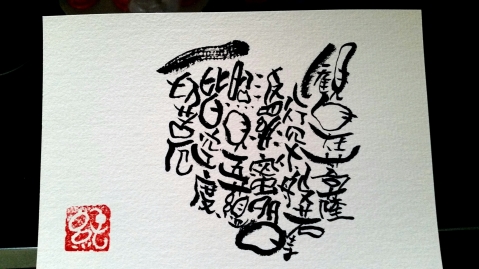 観自在菩薩
行深般若
波羅蜜多時
照見五蘊
皆空度
一切苦厄